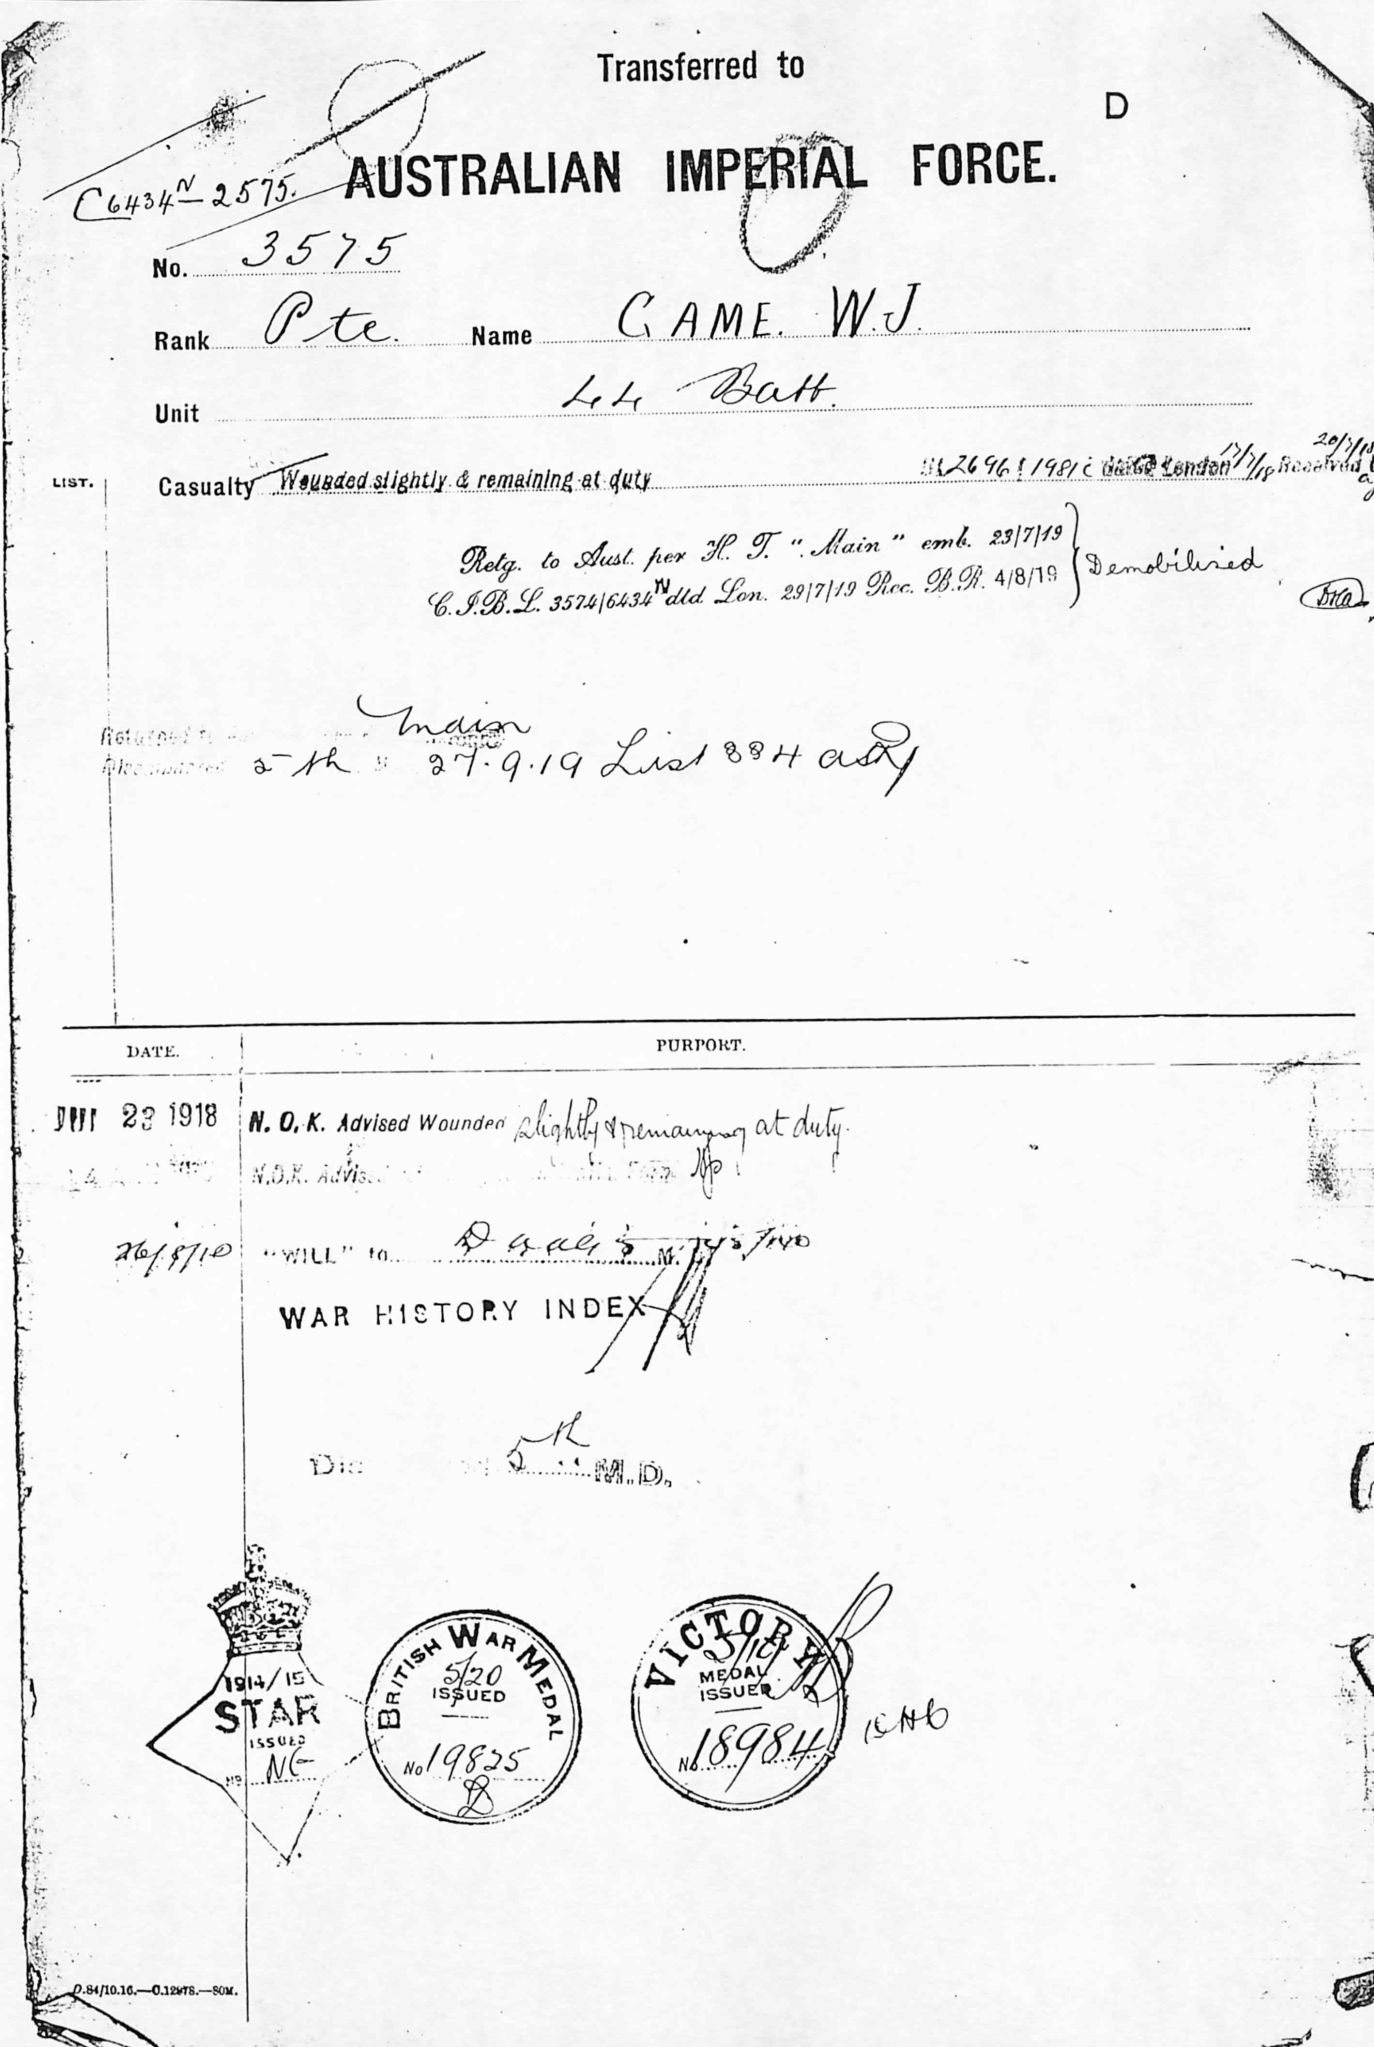 Transferred to
D
AUSTRALIAN IMPERIAL FORCE.
C6434N 2575.
No. 3575
Rank Pte. Name GAME. W.J.
Unit 44 Batt.
LIST.
Casualty Wounded slightly & remaining at duty 2696 1981 London 17/7/18 Received
20/7/18
Retg. to Aust. per H. T. "Main" emb. 23/7/19
C.I.B.L. 3574/6434N dld. Lon. 29/7/19 Rec. B.R. 4/8/19
Demobilised
Main
Returned
5th 27.9.19 List 884
DATE. PURPORT.
23 1918 N.O.K. Advised Wounded slightly & remaining at duty.
N.O.K. Advised
"WILL" to
WAR HISTORY INDEX
5th M.D.
1914/15
STAR
ISSUED
No
BRITISH WAR MEDAL
5/20
ISSUED
No 19825
VICTORY
MEDAL
ISSUED
No 18984
D.84/10.16.—C.12978.—50M.